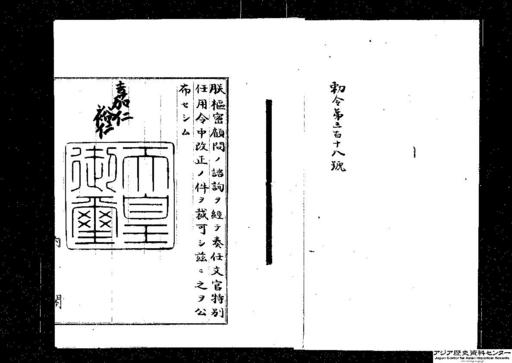 勅令第三百十八號
朕樞密顧問ノ諮詢ヲ經テ奏任文官特別
任用令中改正ノ件ヲ裁可シ茲ニ之ヲ公
布セシム
嘉仁
裕仁
天皇
御璽
内閣
アジア歴史資料センター
Japan Center for Asian Historical Records